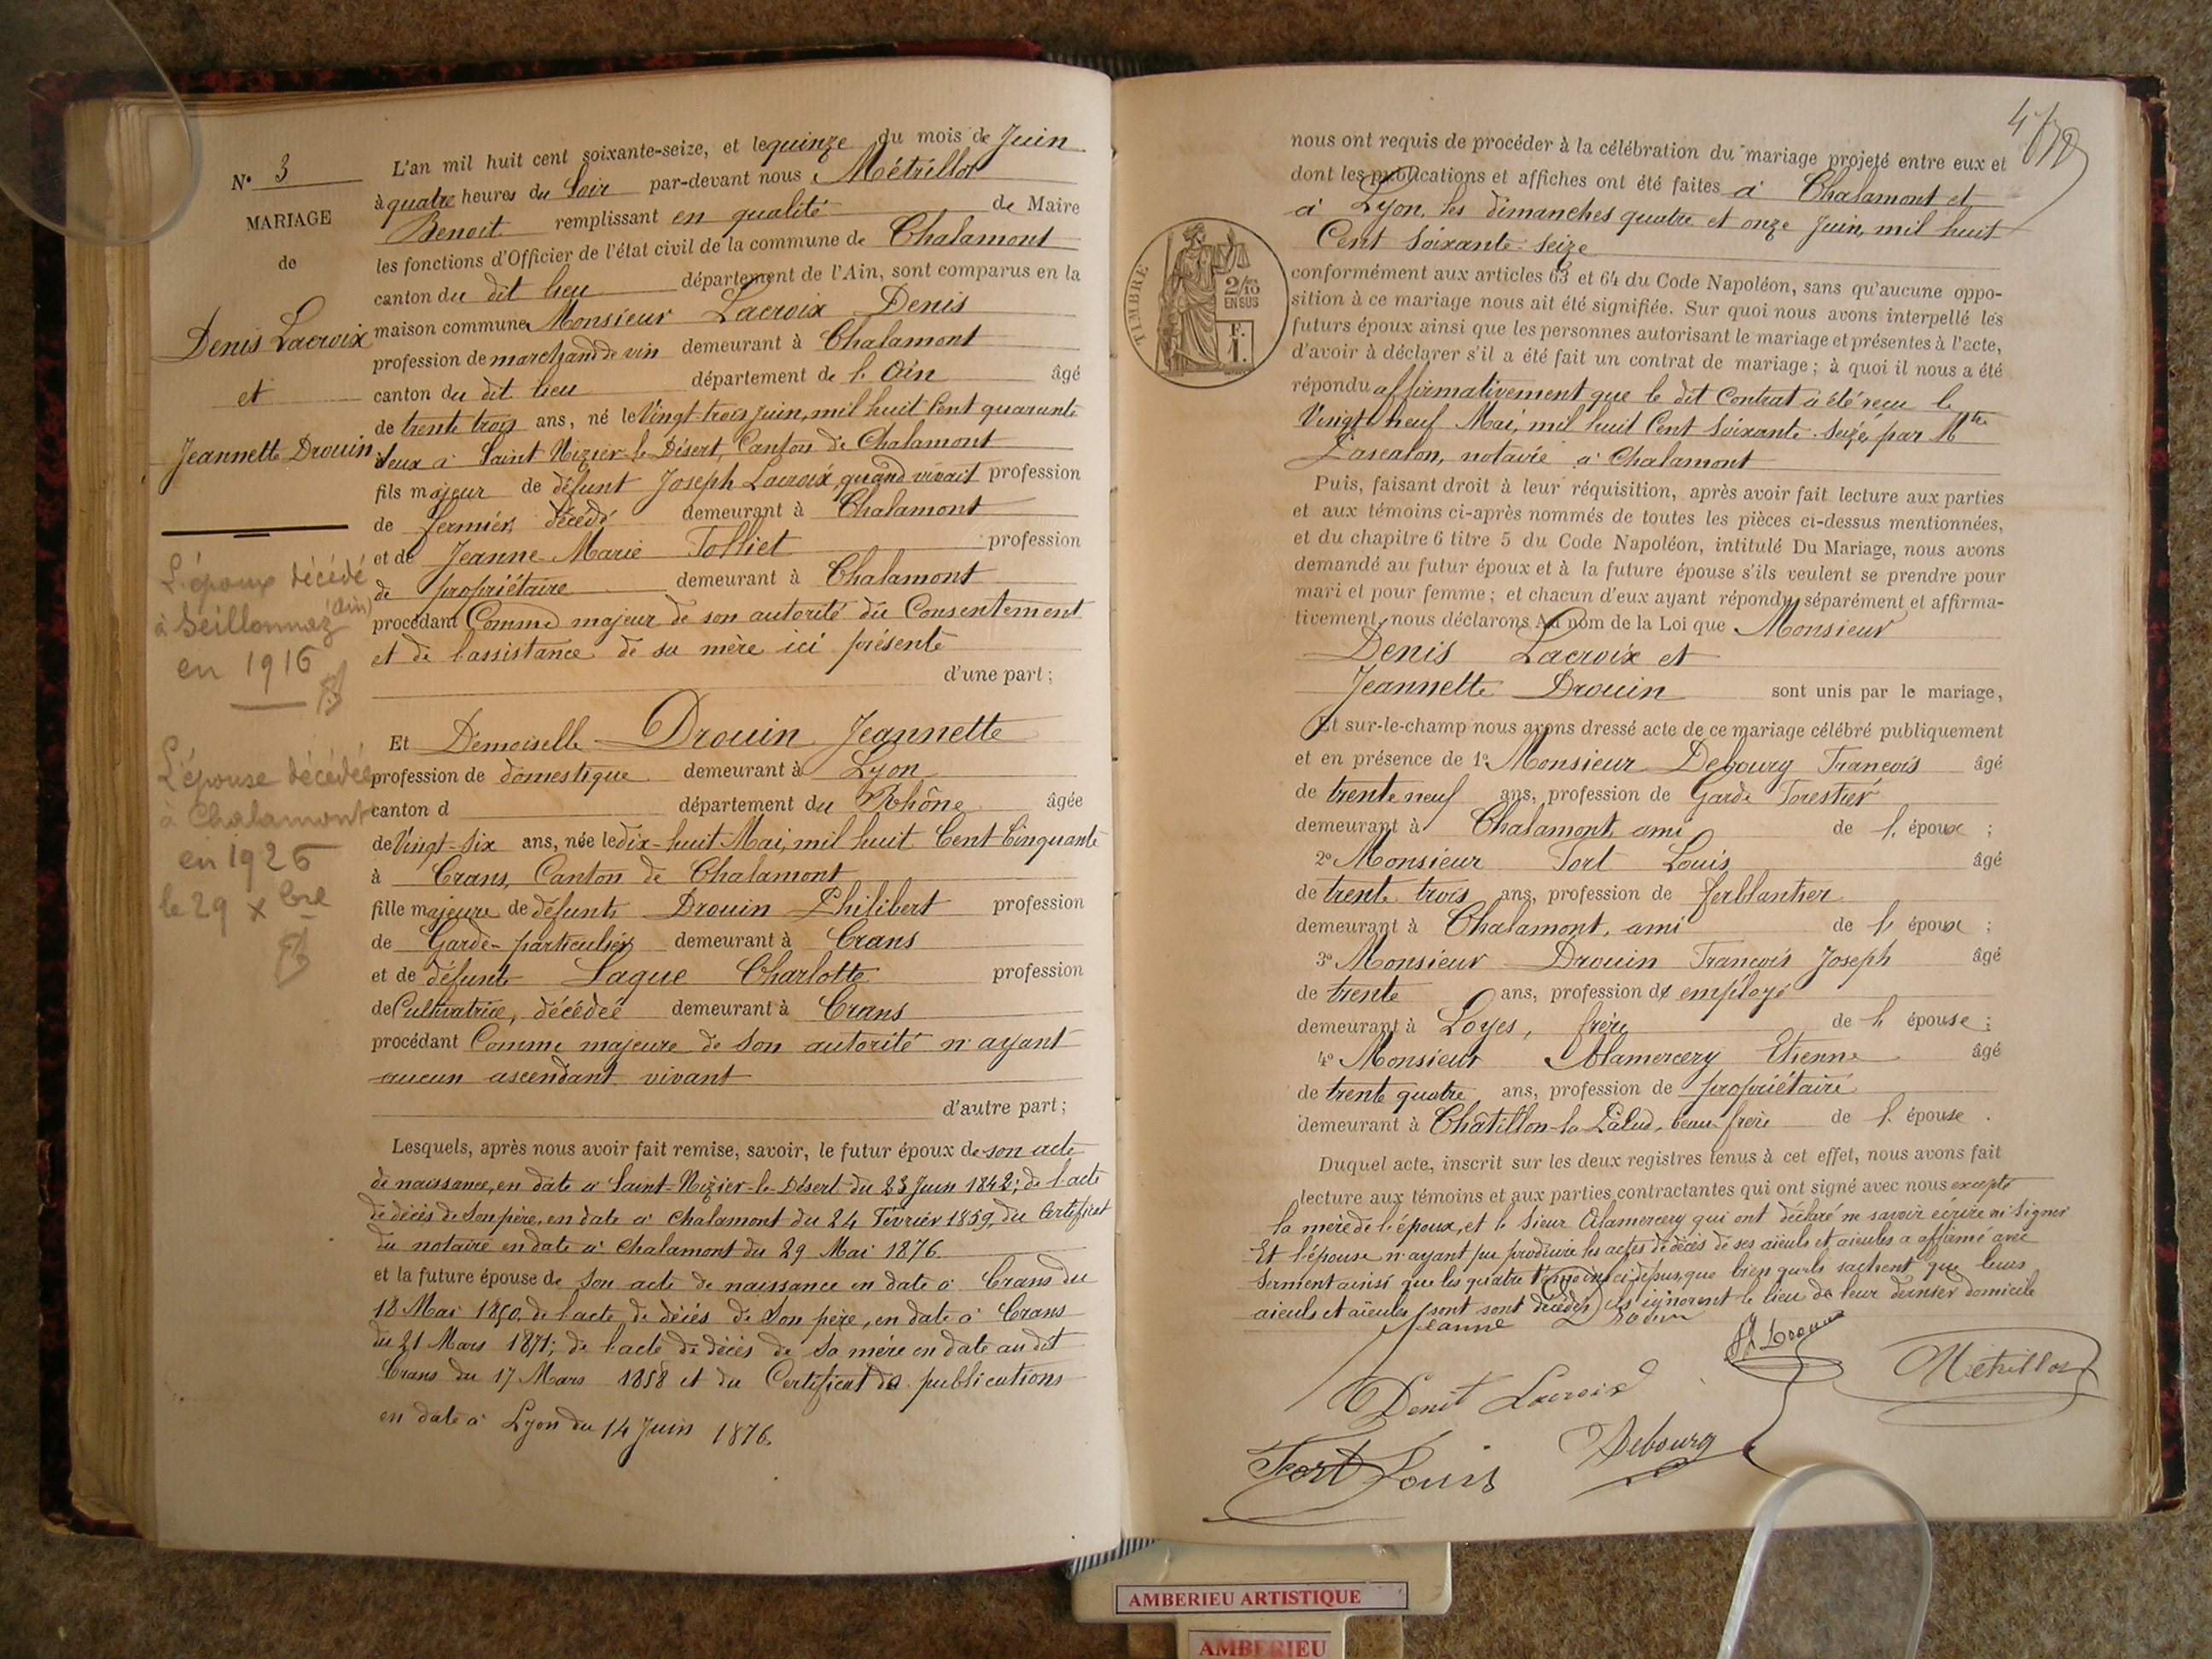 N° 3
MARIAGE
de
Denis Lacroix
et
Jeannette Drouin
L'époux décédé
à Seillonnaz (Ain)
en 1916
L'épouse décédée
à Chalamont
en 1926
le 29 Xbre
L'an mil huit cent soixante-seize, et le quinze du mois de Juin
à quatre heures du Soir par-devant nous Métrillot
Benoit remplissant en qualité de Maire
les fonctions d'Officier de l'état civil de la commune de Chalamont
canton du dit lieu département de l'Ain, sont comparus en la
maison commune Monsieur Lacroix Denis
profession de marchand de vin demeurant à Chalamont
canton du dit lieu département de l'Ain âgé
de trente trois ans, né le Vingt-trois juin, mil huit Cent quarante
deux à Saint Nizier-le-Désert, Canton de Chalamont
fils majeur de défunt Joseph Lacroix, quand vivait profession
de fermier, décédé demeurant à Chalamont
et de Jeanne Marie Tolliet profession
de propriétaire demeurant à Chalamont
procédant Comme majeur de son autorité du Consentement
et de l'assistance de sa mère ici présente
d'une part ;
Et Demoiselle Drouin Jeannette
profession de domestique demeurant à Lyon
canton d département du Rhône âgée
de Vingt-Six ans, née le dix-huit Mai, mil huit Cent Cinquante
à Crans, Canton de Chalamont
fille majeure de défunts Drouin Philibert profession
de Garde-particulier demeurant à Crans
et de défunte Lague Charlotte profession
de Cultivatrice, décédée demeurant à Crans
procédant Comme majeure de Son autorité n'ayant
aucun ascendant vivant
d'autre part ;
Lesquels, après nous avoir fait remise, savoir, le futur époux de son acte
de naissance, en date à Saint-Nizier-le-Désert du 23 Juin 1842 ; de l'acte
de décès de Son père, en date à Chalamont du 24 Février 1859, du Certificat
du notaire en date à Chalamont du 29 Mai 1876.
et la future épouse de Son acte de naissance en date à Crans du
18 Mai 1850, de l'acte de décès de Son père, en date à Crans
du 21 Mars 1871 ; de l'acte de décès de Sa mère en date au dit
Crans du 17 Mars 1858 et du Certificat de publications
en date à Lyon du 14 Juin 1876.
nous ont requis de procéder à la célébration du mariage projeté entre eux et
dont les publications et affiches ont été faites à Chalamont et
à Lyon, les dimanches quatre et onze Juin, mil huit
Cent Soixante-Seize
TIMBRE
2/10
EN SUS
F.
1.
conformément aux articles 63 et 64 du Code Napoléon, sans qu'aucune oppo-
sition à ce mariage nous ait été signifiée. Sur quoi nous avons interpellé les
futurs époux ainsi que les personnes autorisant le mariage et présentes à l'acte,
d'avoir à déclarer s'il a été fait un contrat de mariage ; à quoi il nous a été
répondu affirmativement que le dit Contrat a été reçu le
Vingt-neuf Mai, mil huit Cent Soixante-Seize, par Mtre
Pascalon, notaire à Chalamont
Puis, faisant droit à leur réquisition, après avoir fait lecture aux parties
et aux témoins ci-après nommés de toutes les pièces ci-dessus mentionnées,
et du chapitre 6 titre 5 du Code Napoléon, intitulé Du Mariage, nous avons
demandé au futur époux et à la future épouse s'ils veulent se prendre pour
mari et pour femme ; et chacun d'eux ayant répondu séparément et affirma-
tivement, nous déclarons Au nom de la Loi que Monsieur
Denis Lacroix et
Jeannette Drouin sont unis par le mariage,
Et sur-le-champ nous avons dressé acte de ce mariage célébré publiquement
et en présence de 1° Monsieur Debourg François âgé
de trente neuf ans, profession de Garde Forestier
demeurant à Chalamont, ami de l'époux ;
2° Monsieur Fort Louis âgé
de trente trois ans, profession de ferblantier
demeurant à Chalamont, ami de l'époux ;
3° Monsieur Drouin François Joseph âgé
de trente ans, profession d'employé
demeurant à Loyes, frère de l'épouse ;
4° Monsieur Alamercery Etienne âgé
de trente quatre ans, profession de propriétaire
demeurant à Châtillon-la-Palud, beau-frère de l'épouse .
Duquel acte, inscrit sur les deux registres tenus à cet effet, nous avons fait
lecture aux témoins et aux parties contractantes qui ont signé avec nous excepté
la mère de l'époux, et le Sieur Alamercery qui ont déclaré ne savoir écrire ni Signer
Et l'épouse n'ayant pu produire les actes de décès de ses aïeuls et aïeules a affirmé avec
Serment ainsi que les quatre témoins ci-dessus, que bien qu'ils sachent que leurs
aïeuls et aïeules sont sont décédés, ils ignorent le lieu de leur dernier domicile
Jeanne Drouin
Denit Lacroix
Métrillot
Fort Louis
Debourg
AMBERIEU ARTISTIQUE
AMBERIEU